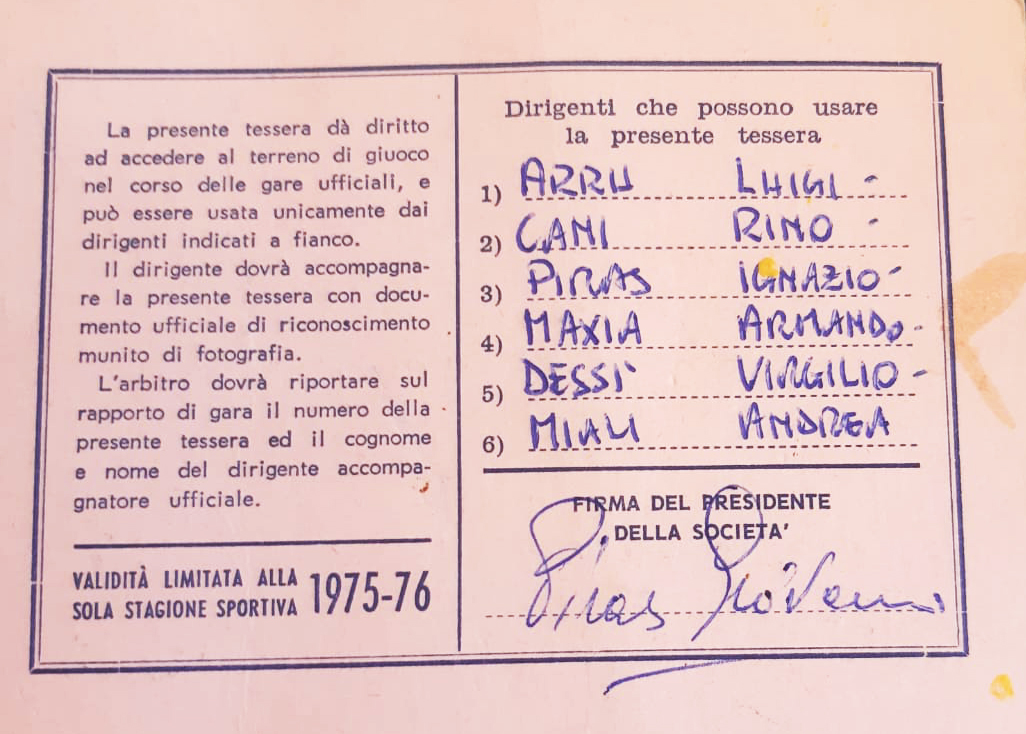 La presente tessera dà diritto
ad accedere al terreno di giuoco
nel corso delle gare ufficiali, e
può essere usata unicamente dai
dirigenti indicati a fianco.
Il dirigente dovrà accompagna-
re la presente tessera con docu-
mento ufficiale di riconoscimento
munito di fotografia.
L'arbitro dovrà riportare sul
rapporto di gara il numero della
presente tessera ed il cognome
e nome del dirigente accompa-
gnatore ufficiale.
VALIDITÀ LIMITATA ALLA
SOLA STAGIONE SPORTIVA 1975-76
Dirigenti che possono usare
la presente tessera
1) ARRU LUIGI -
2) CANI RINO -
3) PIRAS IGNAZIO -
4) MAXIA ARMANDO -
5) DESSI' VIRGILIO -
6) MIALI ANDREA
FIRMA DEL PRESIDENTE
DELLA SOCIETA'
Piras Giovanni